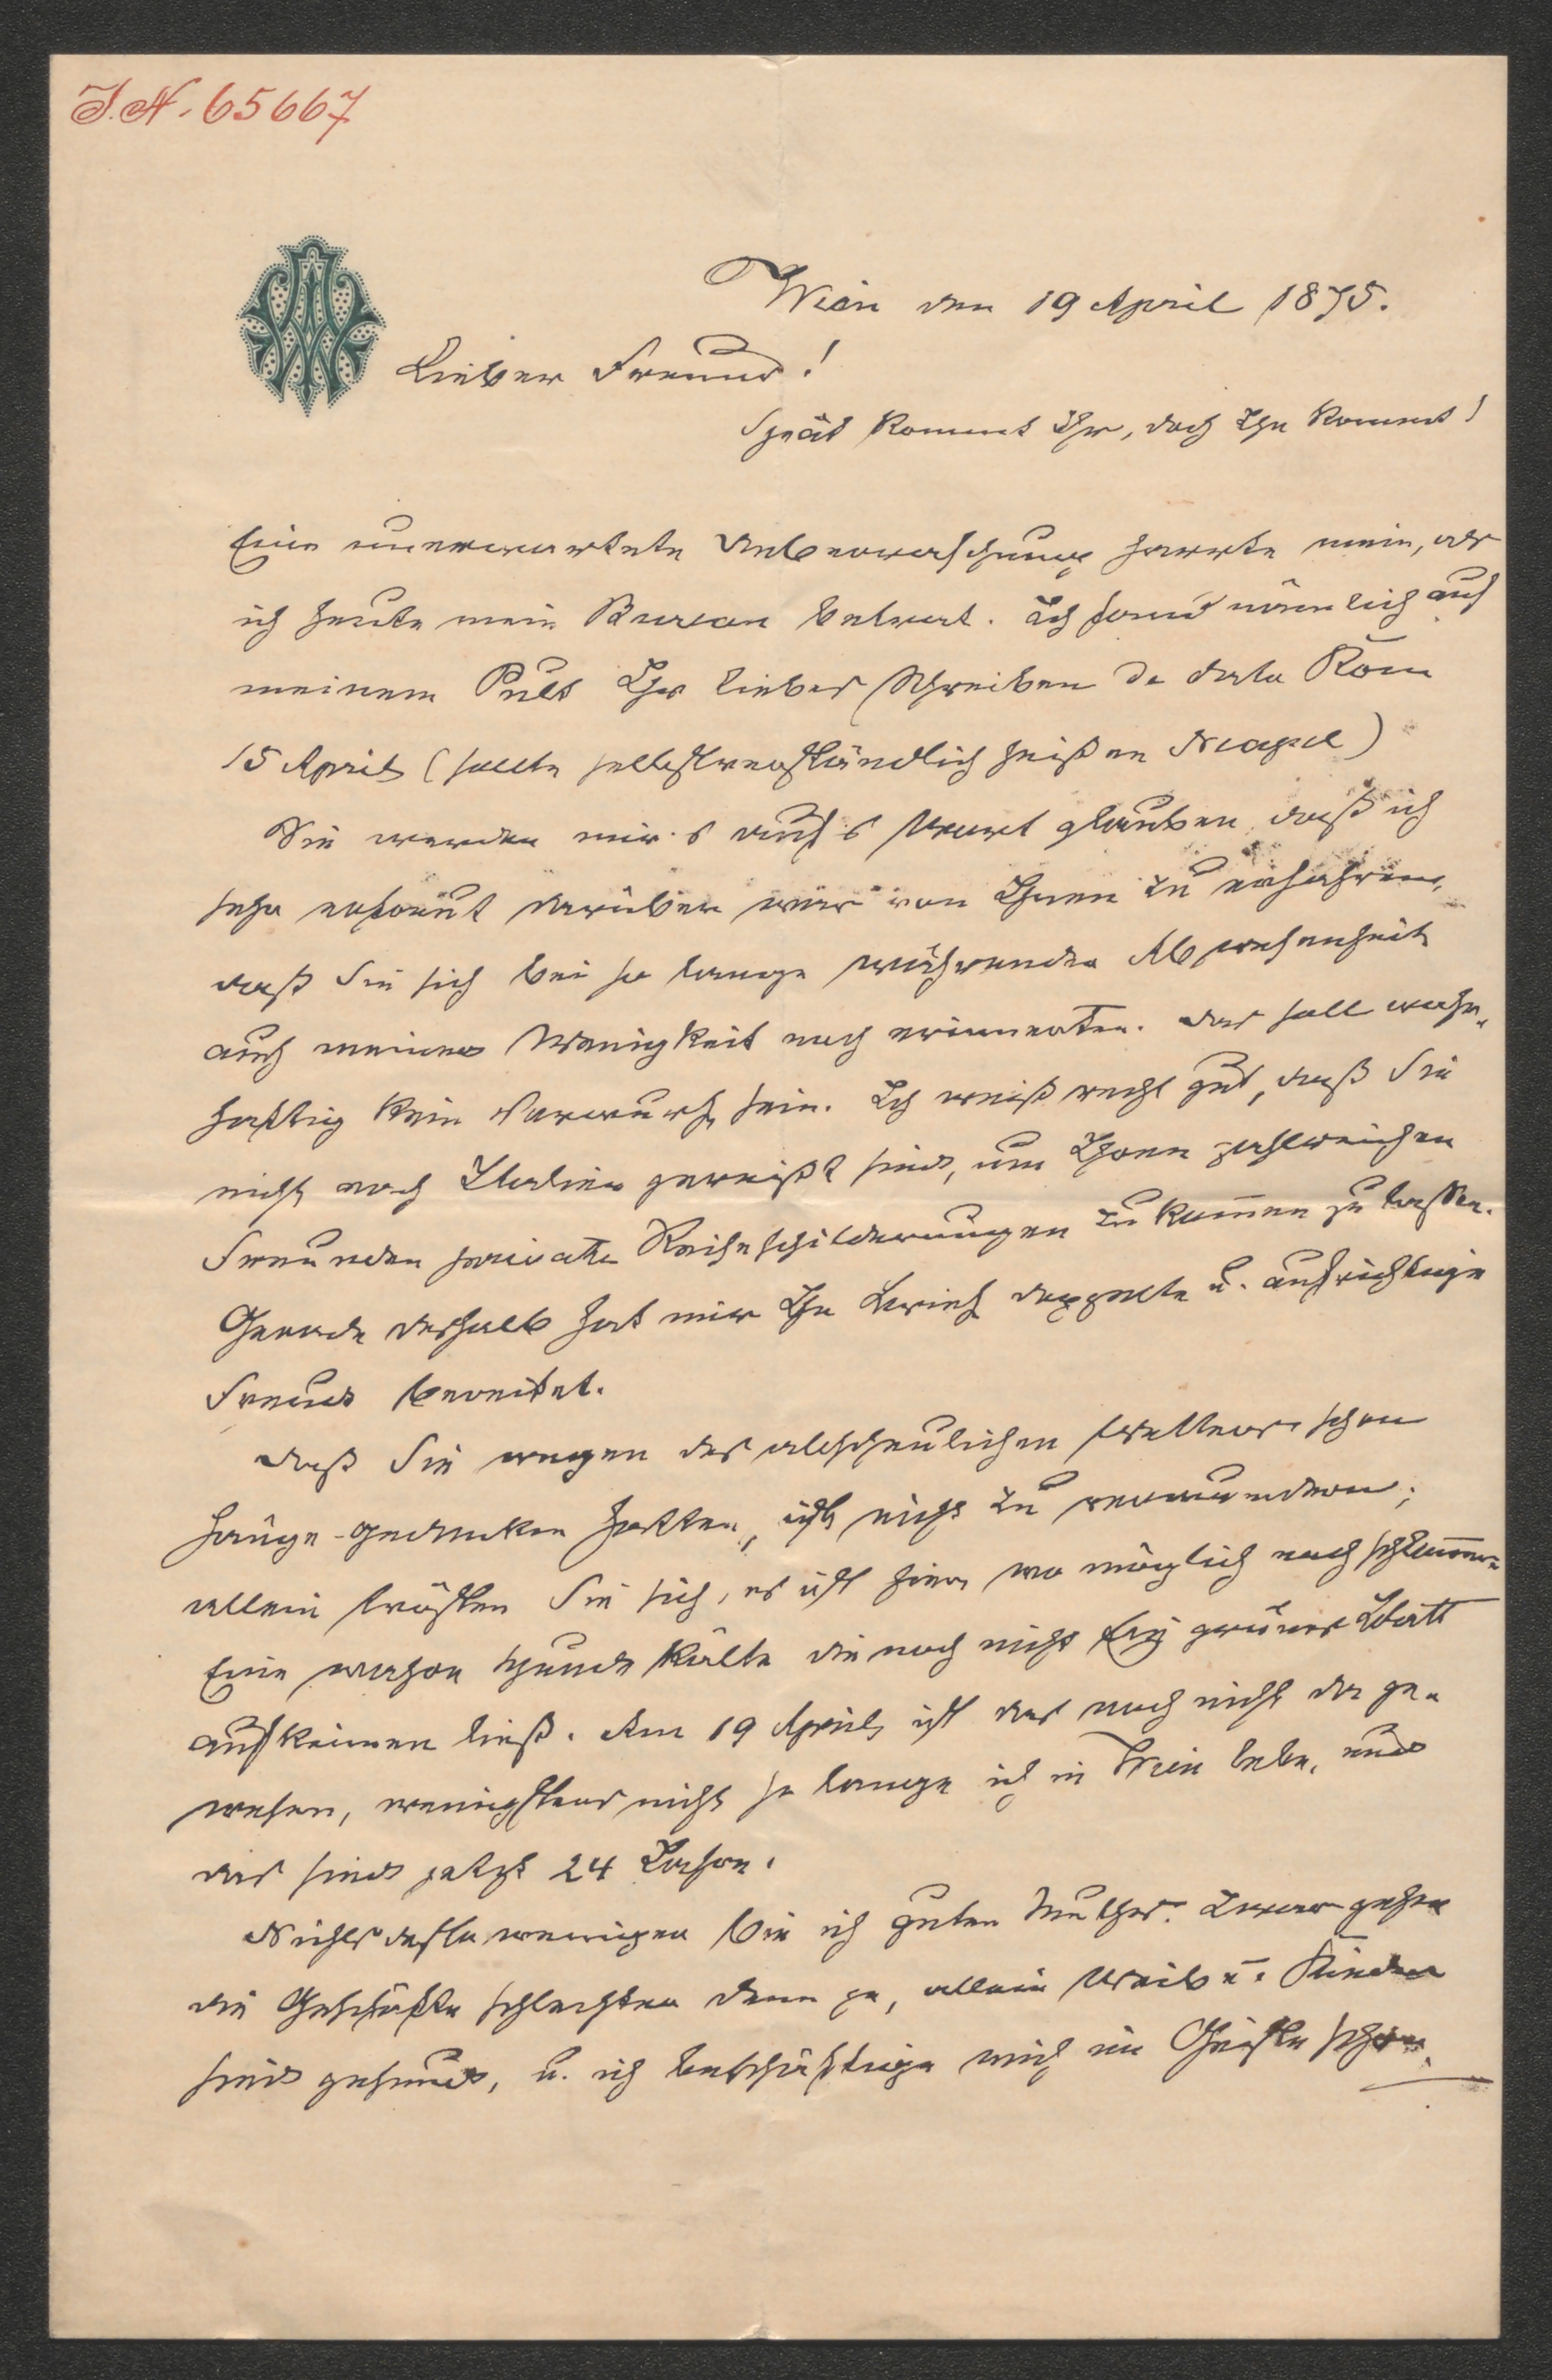 I.N. 65667
Wien den 19 April 1875.
Lieber Freund!
Spät kommt Ihr, doch Ihr kommt!
Eine unerwartete Ueberraschung harrte mein, als
ich heute mein Bureau betrat. Ich fand nämlich auf
meinem Pult Ihr liebes Schreiben de dato Rom
15 April (sollte selbstverständlich heißen Neapel)
Sie werden mir's auf's Wort glauben, daß ich
sehr erfreut darüber war von Ihnen zu erfahren,
daß Sie sich bei so lange währender Abwesenheit
auch meiner Wenigkeit noch erinnerten. Das soll wahr-
haftig kein Vorwurf sein. Ich weiß recht gut, daß Sie
nicht nach Italien gereißt sind, um Ihren zahlreichen
Freunden private Reiseschilderungen zukom̅en zu lassen.
Gerade deshalb hat mir Ihr Brief doppelte u. aufrichtige
Freude bereitet.
Daß Sie wegen des abscheulichen Wetters schon
Hänge-Gedanken hatten, ist nicht zu verwundern;
allein trösten Sie sich, es ist hier wo möglich noch schlim̅er
Eine wahre Hunde Kälte die noch nicht Ein grünes Blatt
aufkeimen ließ. Am 19 April ist das noch nicht da ge-
wesen, wenigstens nicht so lange ich in Wien lebe, und
das sind jetzt 24 Jahre.
Nichts desto weniger bin ich guten Muthes. Zwar gehen
die Geschäfte schlechter denn je, allein Weib u. Kinder
sind gesund, u. ich beschäftige mich im Geiste schon